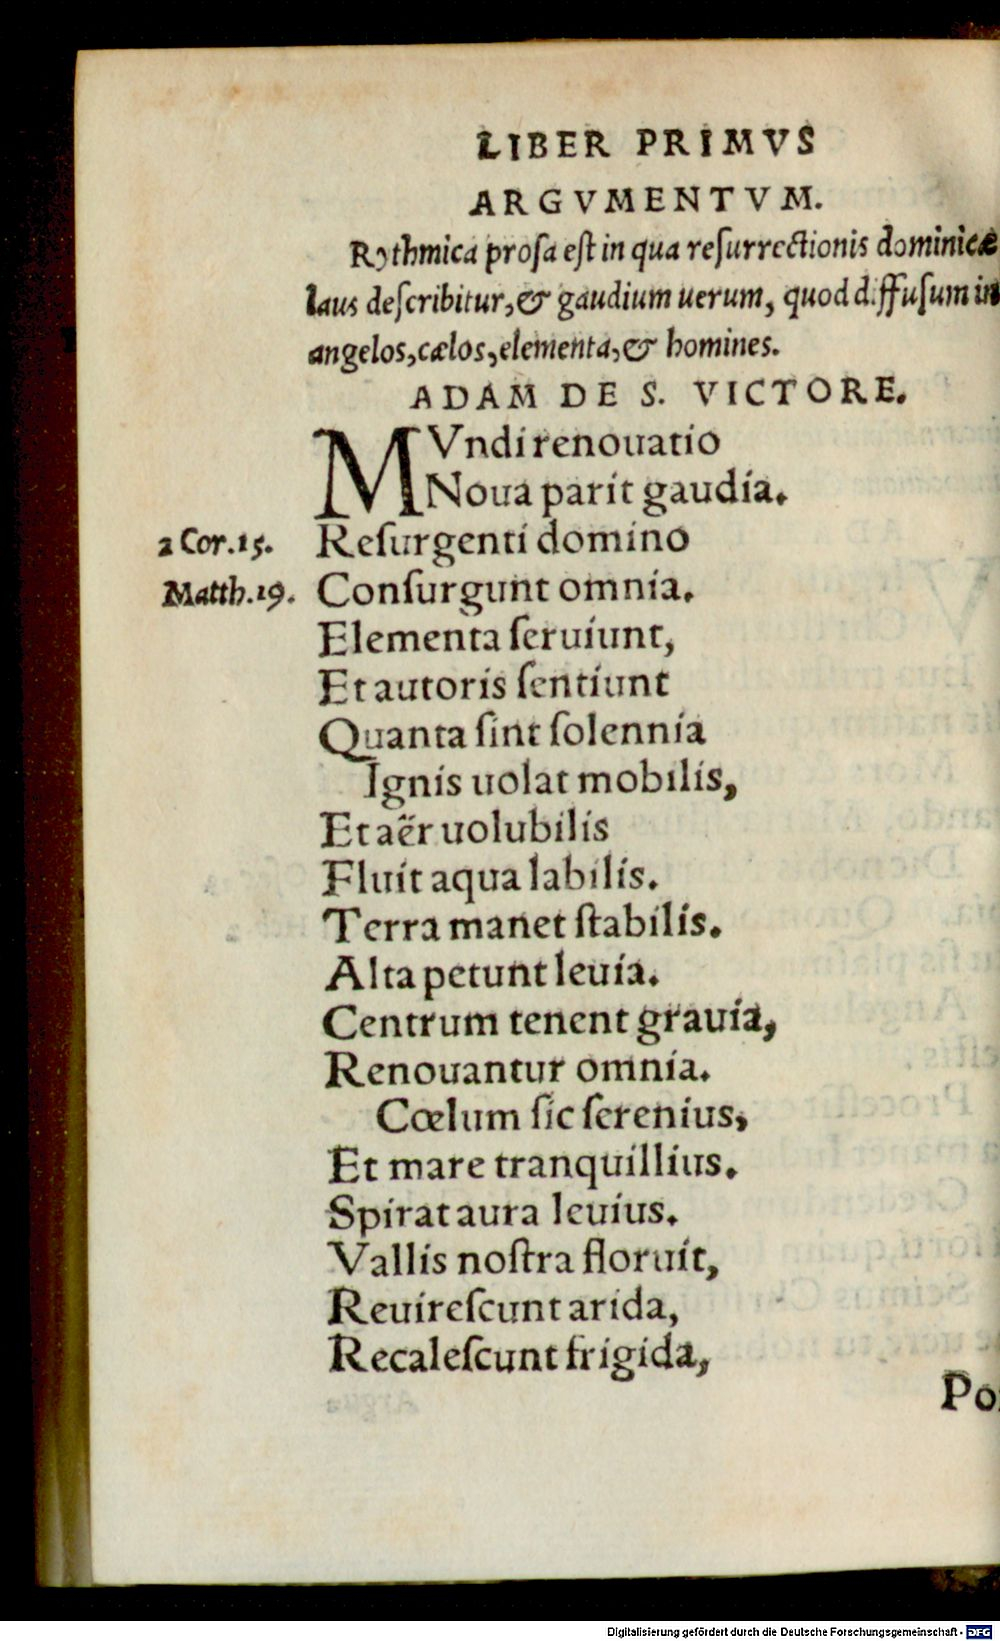 LIBER PRIMVS
ARGVMENTVM.
Rythmica prosa est in qua reſurrectionis dominicæ
laus deſcribitur, & gaudium uerum, quod diffuſum in
angelos, cælos, elementa, & homines.
ADAM DE S. VICTORE.
MVndi renouatio
Noua parit gaudia.
2 Cor. 15. Reſurgenti domino
Matth. 19. Conſurgunt omnia.
Elementa ſeruiunt,
Et autoris ſentiunt
Quanta ſint ſolennia
Ignis uolat mobilis,
Et aër uolubilis
Fluit aqua labilis.
Terra manet ſtabilis.
Alta petunt leuia.
Centrum tenent grauia,
Renouantur omnia.
Cœlum ſic ſerenius,
Et mare tranquillius.
Spirat aura leuius.
Vallis noſtra floruit,
Reuireſcunt arida,
Recaleſcunt frigida,
Digitalisierung gefördert durch die Deutsche Forschungsgemeinschaft - DFG